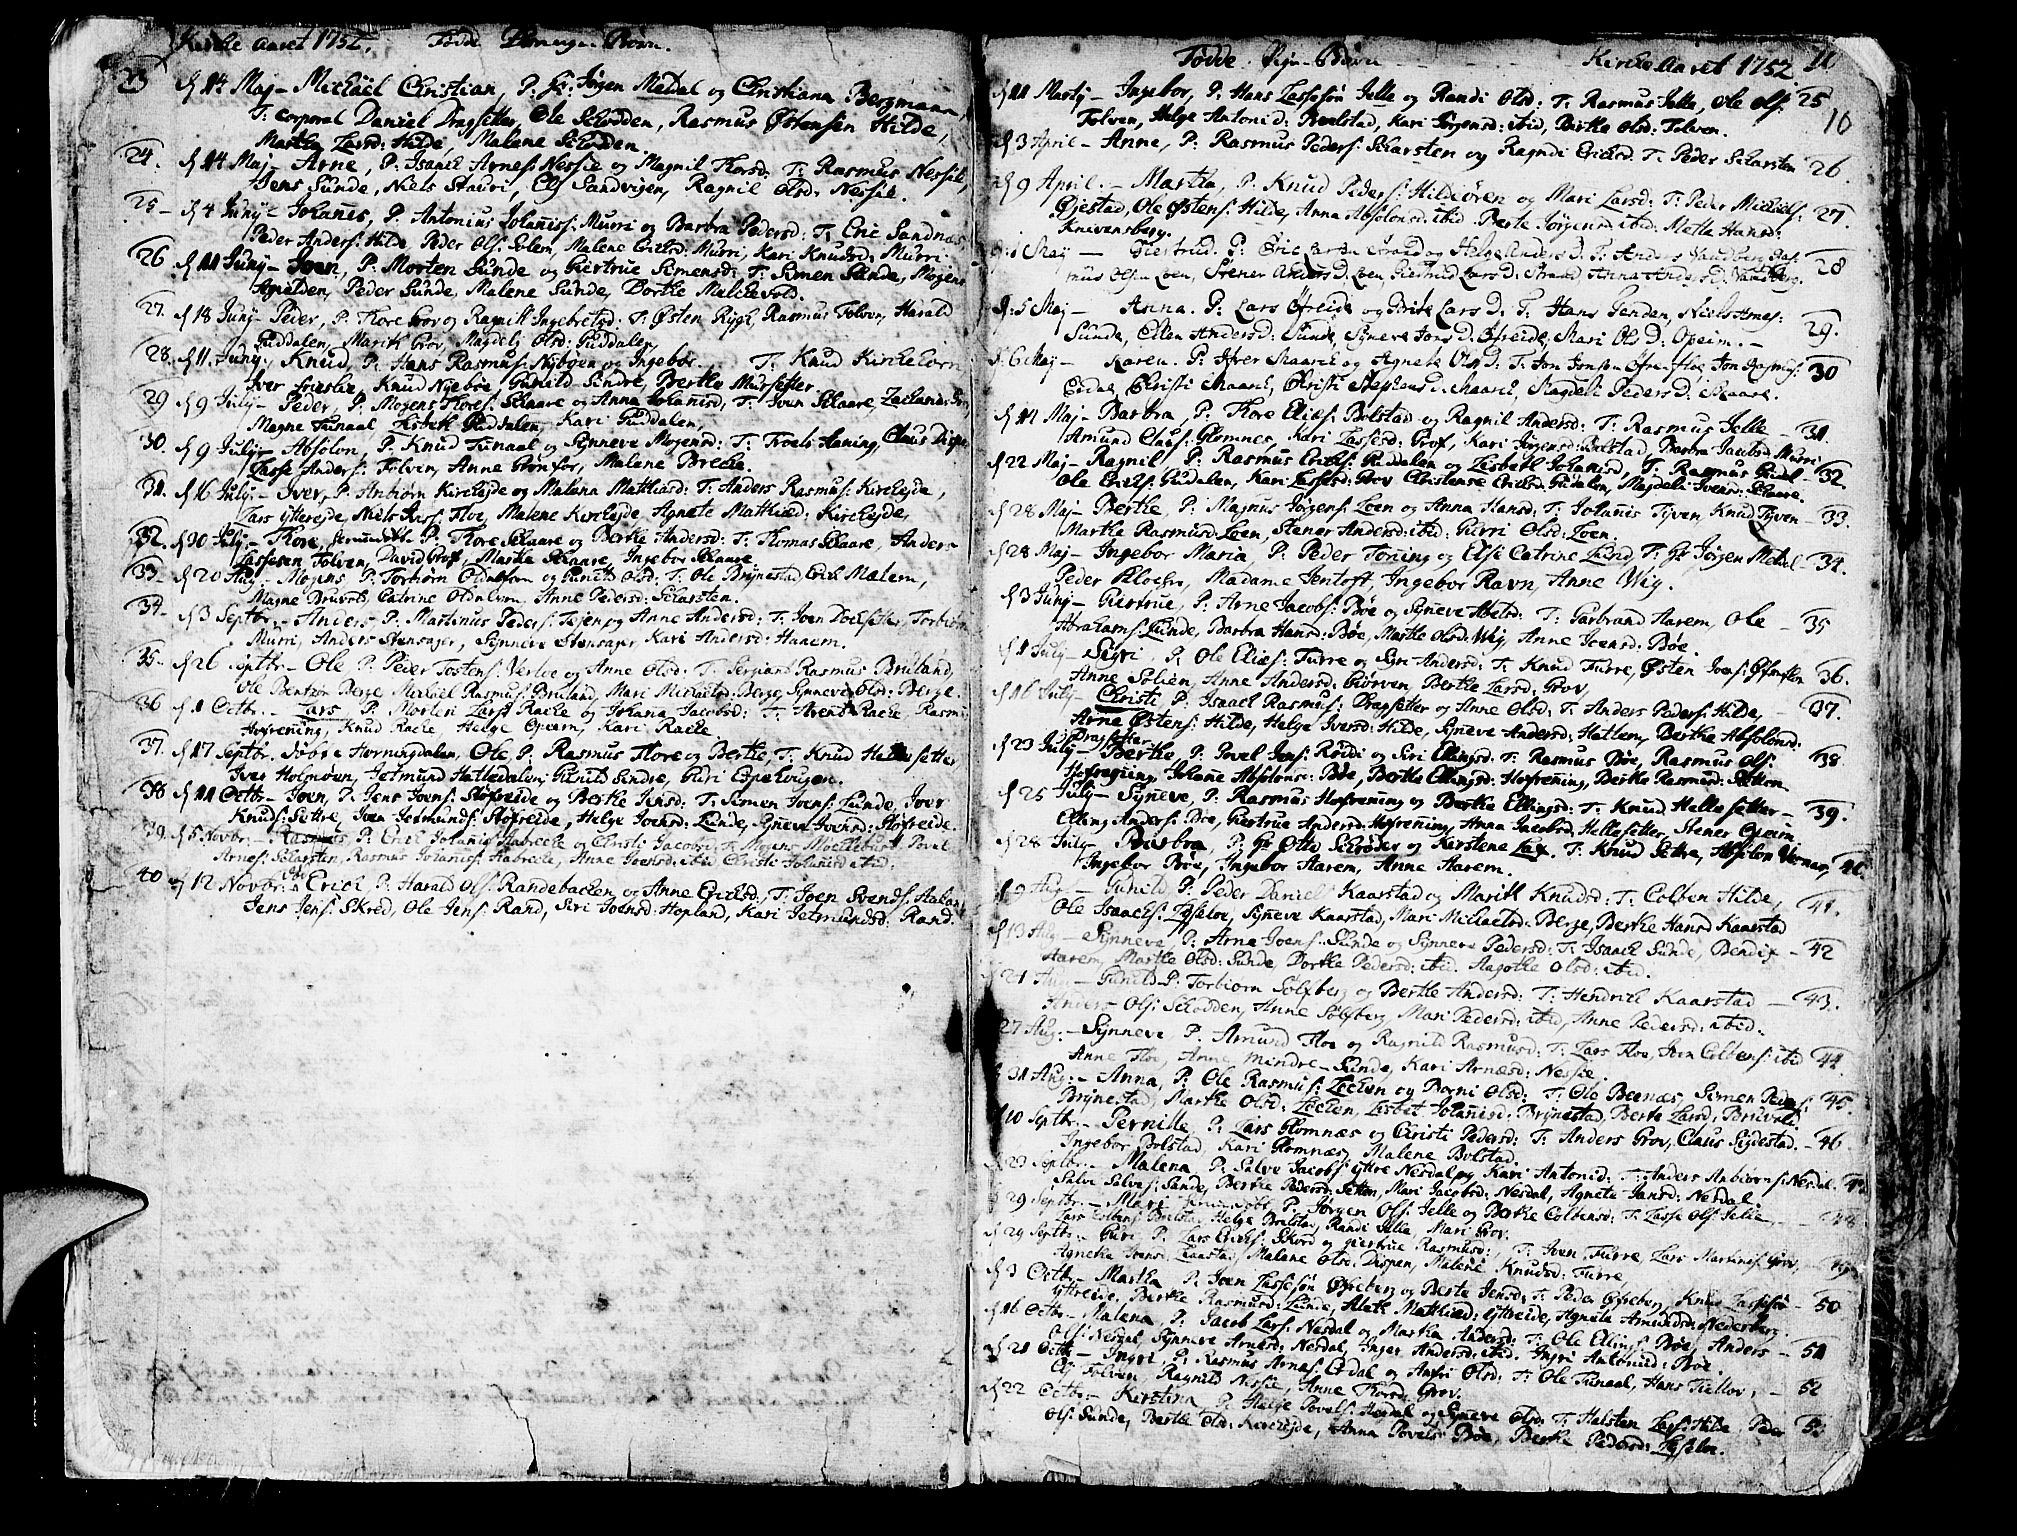 Kirke Aaret 1752. Fødde Drenge-Børn.
23 d 14 Maj – Michäel Christian, P. Hr: Jørgen Medal og Christiana Bergmann,
T: Corporal Daniel Dragsetter, Ole Schodden, Rasmus Østensen Hilde,
Martha Larsd: Hilde, Malene Schodden.
24. d 14 Maj – Arne, P. Isaach Arnes: Nessie og Magnil Thorsd: T: Rasmus Nessie,
Jens Sunde, Niels Stauri, Elj Sandvigen, Ragnil Olsd: Nessie.
25 – d 4 Juny – Johañes, P. Antonius Johañiss: Murri og Barbra Pedersd: T: Eric Sandnæs
Peder Anders: Hilde, Peder Ols: Solem, Malene Ericksd: Murri, Kari Knudsd: Murri.
26 d 11 Juny – Joen, P: Morten Sunde og Giertrue Simensd: T: Simen Sunde, Mogens
Peder Sunde, Malene Sunde, Dorthe Melchevold.
27. d 18 Juny – Peder, P: Thore Grov og Ragnilt Ingebretsd: T: Østen Rygh, Rasmus Folven, Harald
Guddalen, Marith Grov, Magdeli Olsd: Guddalen.
28. d 11. Juny, Knud, P: Hans Rasmus: Nybøen og Ingebor T: Knud Kirchehorn
Iver Frislie, Knud Nyebøe, Gunild Sindre, Berthe Mursetter.
29 d 9 July – Peder, P: Mogens Thores: Skaare og Anna Johañisd, T: Iven Skaare,
Magne Tunaal, Lisbeth Guddalen, Kari Guddalen,
30. d 9 July – Absolon, P: Knud Tunaal og Synneve Mogensd: T: Troels Haning, Claus Dispen
Lasse Anders: Folven, Anne Grønfor, Malene Brecke.
31. d 16 July – Iver, P: Anbiørn Kircheide og Malena Matthiasd: T: Anders Rasmus: Kircheide,
Lars ytterejde, Niels Rass: Floe, Malene Kircheide, Agnete Matthiæd: Kircheide,
32. d 30 July – Thore, P: Thore Skaare og Berthe Andersd: T: Thomas Skaare, Anders
Lassesen Folven, David Grof, Marthe Skaare, Ingebor Skaare.
33. d 20 Aug: – Mogens P: Torbiørn Oldnevom og Gunild Olsd: T: Ole Brynestad Erich Mælem,
Magne Bruvold, Catrine Oldnevom, Anne Pedersd: Scharsten.
34. d 3 Septbr: – Anders P: Martinus Peders: Tejen og Anne Andersd: T: Joen Doelsetter, Torbiørn
Murri, Anders Stensager, Synneve Stensager, Kari Andersd: Haarem.
35. d 26 Septbr: – Ole P: Peder Tostens: Verloe og Anne Olsd: T: Sergiant Rasmus Bruland,
Ole Bentzøn Berge, Michael Rasmus: Bruland, Mari Michaelsd: Berge, Synneve Olsd: Berge.
36 d 1 Octbr: – Lars P: Morten Lars: Rache og Johana Jacobsd: T: Arend Rache – Rasmus
Hoprening, Knud Rache, Helge Opeem, Kari Rache.
37. d 17 Septbr. døbge Horningdalen, Ole P: Rasmus Thore og Berthe, T: Knud Hellesetter
Iver Holmøen, Jetmund Hattedalen, Gunild Sindre, Guri Espehougen.
38 d 11 Octbr: – Joen, P: Jens Joens: Støfreide og Berthe Jensd: T: Simen Joens: Sunde, Iver
Knuds: Sættre, Joen Jetmunds: Støfreide, Helge Joensd: Sunde, Synneve Joensd: Støfreide.
39. d 5 Novbr. – Rasmus, P: Erich Johañis: Habreche og Christi Jacobsd: T: Mogens Mochlebust, Povel
Arnes: Scharsten, Rasmus Johañis: Habreche, Anne Joensd: ibid Christi Johañisd ibid.
40 d 12 Novbr: Erich, P: Harald Ols: Randebachen og Anne Ericksd, T: Joen Svends:
Jens Jens: Skred, Ole Jens: Rand, Siri Joensd: Hopland, Kari Jetmundsd: Rand.
Fødde Pige-Børn Kirke Aaret 1752 10
10
d 11 Martij – Ingebor, P: Hans Lassesøn Jelle og Randi Olsd: T: Rasmus Jelle, Ole Ols: 25
Folven, Helge Antonid: Raelstad, Kari Jørgensd: ibid, Birthe Olsd: Folven.
d 3 April – Anne, P: Rasmus Peders: Scharsten og Ragndi Erichsd: T: Peder Scharsten 26.
d 9 April. – Martha, P: Knud Peders: Hildeøren og Mari Larsd: T: Peder Michels: 27.
Øjestad, Ole Østens: Hilde, Anna Absolonsd: ibid. Berte Jørgensd: ibid: Mette Hansd:
Knivensberg.
d. 1 May – Giertrud. P: Eric Larsen Strand og Helge Anders D. T: Anders Vandberg Ras- 28
mus Ols: Loen, Stener Anders D. Loen, Giertrud Lars D: Strand, Anna Anders D: Vandberg.
d. 5 Maj – Anna. P: Lars Øfreide og Brite Lars D. T: Hans Genden, Niels Arnes: 29.
Sunde, Eden Anders D: Sunde, Syneve Jons D: Øfreide, Mari Ols D: Opeim. –
d. 6 Maj – Karen. P: Iver Maarch og Agnete Ols D: T: Jon Jonsen Øfrefloe, Jon Rasmus: 30
Erdal, Christi Maarch, Christi Stephens D. Maarch, Magdeli Peders D. Skaare.
d 11 Maj – Barbra P: Thore Elias: Bolstad og Ragnil Andersd: T: Rasmus Jelle – 31.
Amund Claus: Glomnes, Kari Lassesd: Grof, Kari Jørgensd: Bolstad, Barbra Jacobsd: Murri
d 22 Maj – Ragnil P: Rasmus Erichs: Guddalen og Lisbeth Johanisd, T: Rasmus Gudal – 32.
Ole Erichs: Gudalen, Kari Lassesd: Grov Christense Erichsd: Gudalen, Magdeli Iversd: Skaare.
d 28 Maj – Berthe, P: Magnus Jørgens: Loen og Anna Hansd: T: Johañis Tjven, Knud Tjven – 33.
Marthe Rasmusd: Loen, Stener Andersd: ibid: Gurri Olsd: Loen.
d 28 Maj – Ingebor Maria, P: Peder Toning og Else Catrine Lund, T: Hr: Jørgen Medal – 34.
Peder Klocher, Madame Jentoft, Ingebor Ravn, Anne Wig.
d 3 Juny – Giertrue, P: Arne Jacobs: Bøe og Syneve Abelsd: T: Garbrand Haarem, Ole – 35
Abrahams: Sunde, Barbra Hansd: Bøe, Marthe Olsd: Wig, Anne Joensd: Bøe.
d 1 July – Sigri P: Ole Elias: Furre og Syri Andersd: T: Knud Furre, Østen Joens: Øfresetter 36.
Anne Solien, Anne Andersd: Giørven, Berthe Larsd: Grov,
d 16 July – Christi, P: Isaach Rasmus: Dragsetter og Anne Olsd: T: Anders Peders: Hilde, – 37.
Arne Østens: Hilde, Helge Iversd: Hilde, Syneve Andersd: Hatlem, Berthe Absolonsd:
Dragsetter.
d 23 July – Berthe, P: Povel Jens: Røidi og Siri Ellingsd: T: Rasmus Bøe, Rasmus Ols: 38
Hofreening, Johane Absolons: Bøe, Berthe Ellingsd: Hofrening, Berthe Rasmusd:
d 25 July – Syneve, P: Rasmus Hofrening og Berthe Ellingsd: T: Knud Hellesetter – 39.
Elling Anders: Bøe, Giertrue Andersd: Hofrening, Anna Jacobsd: Hellesetter, Stener Opeim
d 28 July – Barbra, P: Hr Otto Schrøder og Kirstene Lax. T: Knud Settre, Absolon Vernar, 40.
Ingebor Bøe, Ingebor Aarem, Anne Aarem.
d 9 Aug: – Gunild P: Peder Daniels: Kaarstad og Marith Knudsd: T: Colben Hilde, 41.
Ole Isaachs: Løseloe, Syneve Kaarstad, Mari Michaelsd: Berge, Berthe Hansd Kaarstad
d 13 Aug – Synneve, P: Arne Joens: Sunde og Synneve Pedersd: T: Isaach Sunde, Bendix – 42
Aarem, Marthe Olsd: Sunde, Dorthe Pedersd: ibid. Aagothe Olsd: ibid.
d 21 Aug – Gunild P: Torbiørn Solfberg og Berthe Andersd: T: Hendrich Kaarstad – 43.
Anders Ols: Schodden, Anne Solfberg, Mari Pedersd: ibid, Anne Pedersd: ibid.
d 27 Aug. – Synneve P: Amund Floe og Ragnild Rasmusd: T: Lars Floe, Joen Colbens: ibid 44
Anne Floe, Anne Mindre – Sunde, Kari Arnesd: Nessie.
d 31 Aug: – Anna, P: Ole Rasmus: Løchen og Bogni Olsd: T: Ole Beenæs, Simen Peders: 45.
Brynestad, Marthe Olsd: Løchen, Lisbet Johañisd: Brynestad, Berte Larsd: Bruvold.
d 10 Septbr: – Pernille, P: Lars Glomnæs og Christi Pedersd: T: Anders Grov, Claus Sigdestad. – 46
Ingebor Bolstad, Kari Glomnæs, Malene Bolstad.
d 23 Septbr: – Malena P: Salve Jacobs: ytre Nesdal og Kari Antonid: T: Anders Anbiørns: Nesdal. 47
Salve Salves: Sande, Berthe Pedersd: Setten, Mari Jacobsd: Nesdal, Agnete Jansd: Nesdal
d 29 Septbr. – Mari P: Jørgen Ols: Jelle og Berthe Colbensd: T: Lasse Ols: Jelle, 48
Lars Colbens: Bolstad, Helge Bolstad, Randi Jelle, Mari Grov.
d 29 Septbr: – Guri P: Lars Erichs: Skord og Giertrue Rasmusd: T: Joen Furre, Lars Martinus: Grov, – 49
Agnethe Joensd: Kaarstad, Malene Olsd: Dispen, Malene Knudsd: Furre,
d 3 Octbr – Martha P: Joen Lassesøn Øfreberg og Berte Jensd: T: Peder Øfreberg, Knud Lassesøn – 50
Ytterejde, Berthe Rasmusd: Sunde, Aleth Matthiæd: Ytterejde, Agnete Amundsd: Nedreberg.
d 16 Octbr – Malena P: Jacob Lars: Nesdal og Martha Andersd: T: Ole Ellings: Bøe, Anders – 51
Ols: Nesdal, Synneve Arnesd: Nesdal, Inger Andersd: ibid. Ingri Antonisd: Bøe
d 21 Octbr – Ingri P: Rasmus Arnes: Erdal og Anfri Olsd: T: Ole Tunaal, Hans Tiellov, – 52
Elj Folven, Ragnild Nessie, Anne Thorsd: Grov.
d 22 Octbr – Kirstina P: Helje Povels: Hesdal og Syneve Olsd: T: Halsten Lass: Hilde, Peder 53
Ols: Sunde, Berthe Olsd: Kircheide, Anna Povels: Bøe, Berthe Pedersd: Løseloe.